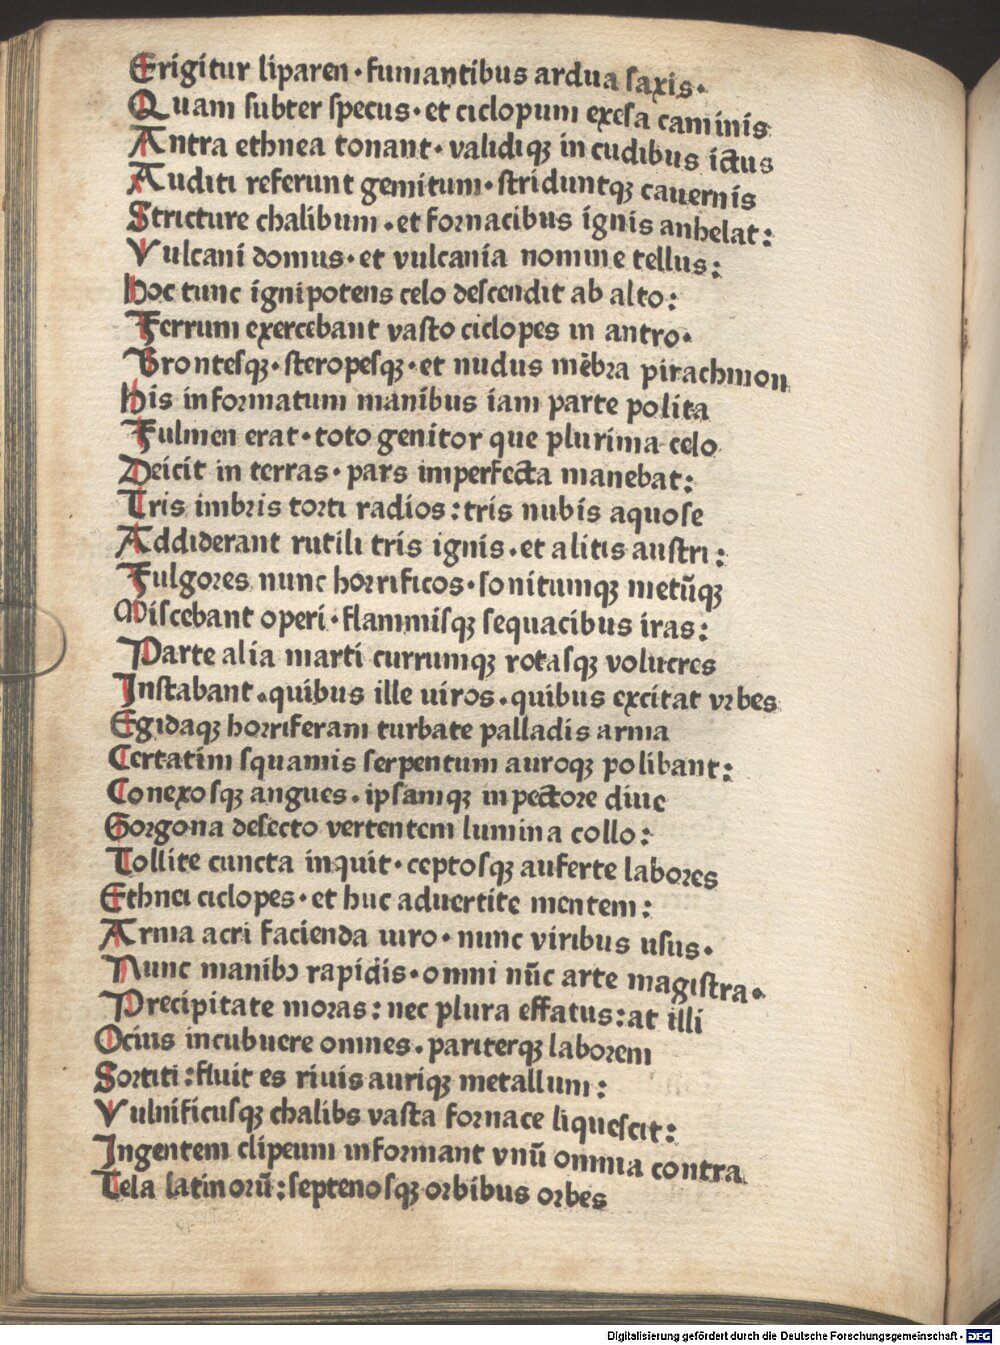 Erigitur liparen · fumantibus ardua saxis·
Quam subter specus · et ciclopum exesa caminis
Antra ethnea tonant · validiqꝫ incudibus ictus
Auditi referunt gemitum · striduntqꝫ cauernis
Stricture chalibum · et fornacibus ignis anhelat:
Vulcani domus · et vulcania nomine tellus:
hoc tunc ignipotens celo descendit ab alto:
Ferrum exercebant vasto ciclopes in antro·
Brontesqꝫ · steropesqꝫ · et nudus mēbra pirachmon
his informatum manibus iam parte polita
Fulmen erat · toto genitor que plurima celo
Deicit in terras · pars imperfecta manebat:
Tris imbris torti radios: tris nubis aquose
Addiderant rutili tris ignis · et alitis austri:
Fulgores nunc horrificos · sonitumqꝫ metūqꝫ
Miscebant operi · flammisqꝫ sequacibus iras:
Parte alia marti currumqꝫ rotasqꝫ volucres
Instabant · quibus ille uiros · quibus excitat vrbes
Egidaqꝫ horriferam turbate palladis arma
Certatim squamis serpentum auroqꝫ polibant:
Conexosqꝫ angues · ipsamqꝫ in pectore diue
Gorgona desecto vertentem lumina collo:
Tollite cuncta inquit · ceptosqꝫ auferte labores
Ethnei ciclopes · et huc aduertite mentem:
Arma acri facienda uiro · nunc viribus usus·
Nunc manibꝰ rapidis · omni nūc arte magistra·
Precipitate moras: nec plura effatus: at illi
Ocius incubuere omnes · pariterqꝫ laborem
Sortiti: fluit es riuis auriqꝫ metallum:
Vulnificusqꝫ chalibs vasta fornace liquescit:
Ingentem clipeum informant vnū omnia contra
Tela latinorū: septenosqꝫ orbibus orbes
Digitalisierung gefördert durch die Deutsche Forschungsgemeinschaft - DFG